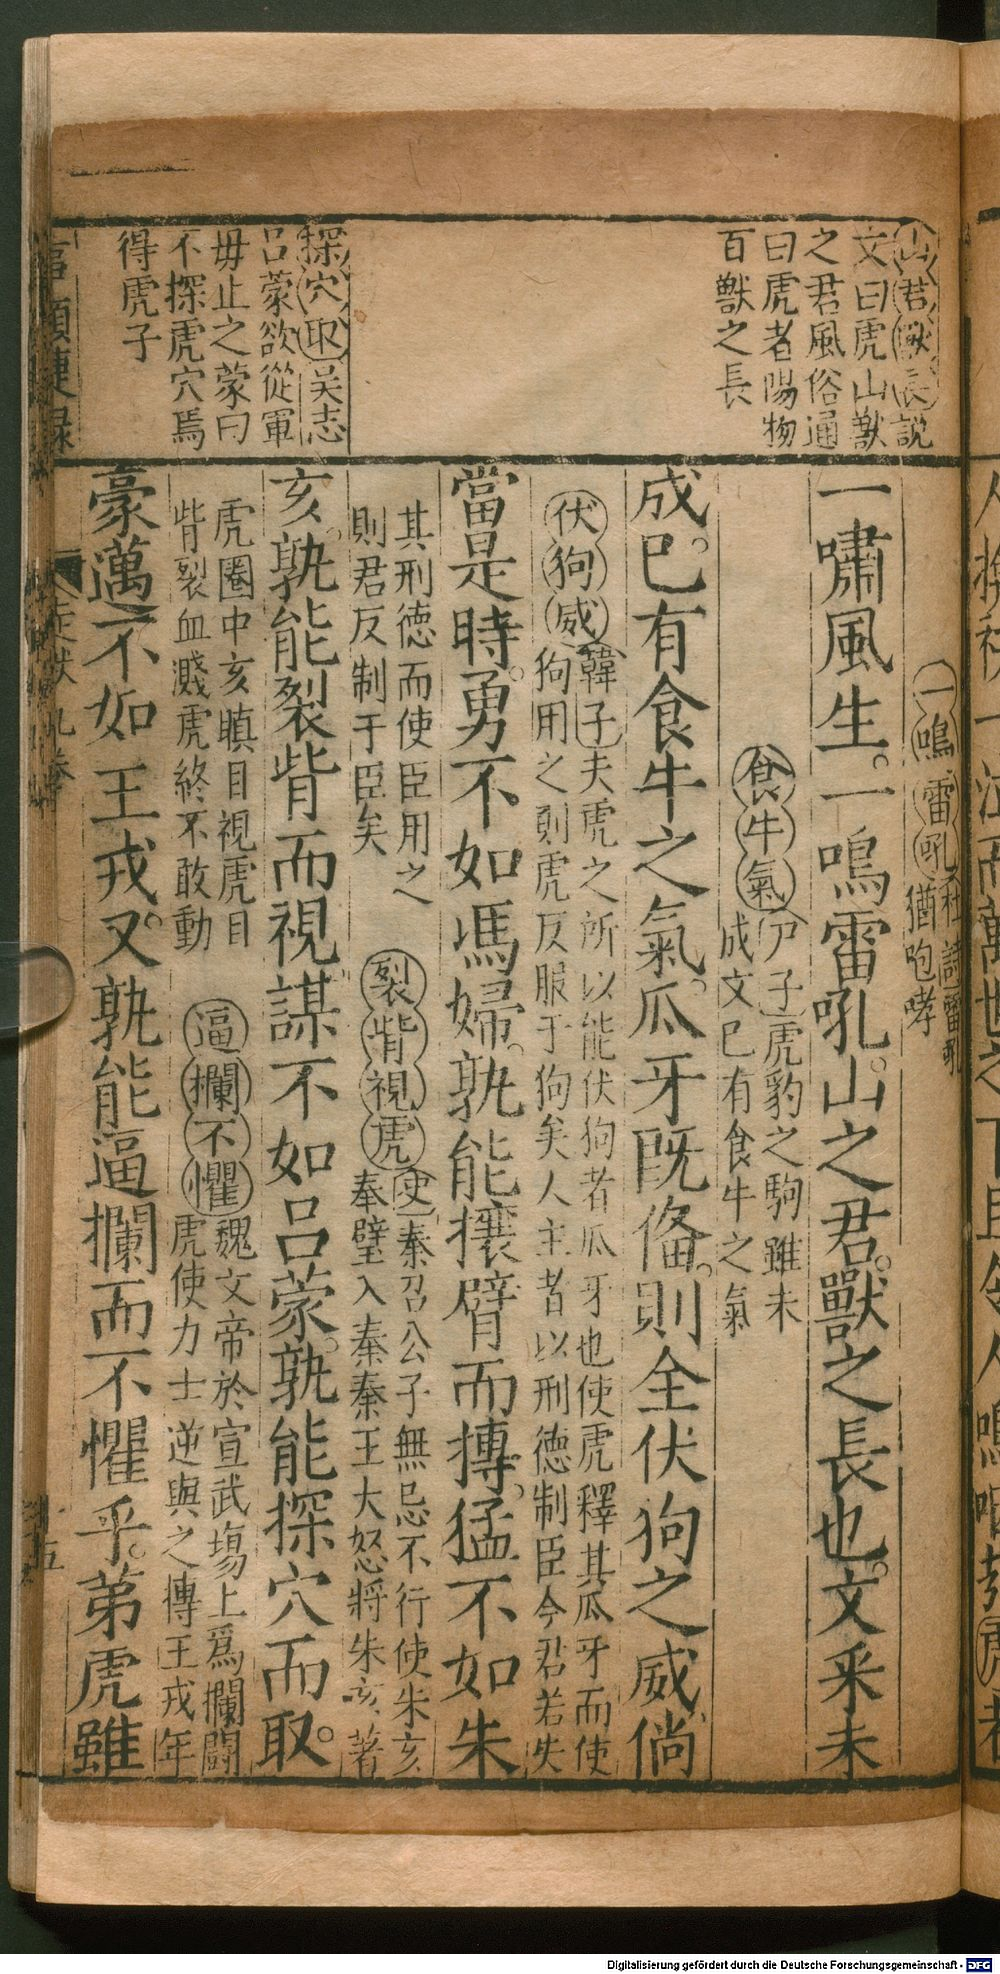 山君獸長說
文曰虎山獸
之君風俗通
曰虎者陽物
百獸之長
探穴取吳志
呂蒙欲從軍
毋止之蒙曰
不探虎穴焉
得虎子
一鳴雷吼杜詩雷吼
猶咆哮
一嘯風生。一鳴雷吼。山之君。獸之長也。文釆未
食牛氣尸子虎豹之駒雖未
成文已有食牛之氣
成。已有食牛之氣。瓜牙既俻。則全伏狗之威。倘
伏狗威韓子夫虎之所以能伏狗者瓜牙也使虎釋其瓜牙而使
狗用之則虎反服于狗矣人主者以刑德制臣今君若失
當是時。勇不如馮婦。孰能攘臂而搏。猛不如朱
其刑德而使臣用之
則君反制于臣矣
裂眥視虎史秦召公子無忌不行使朱亥
奉璧入秦秦王大怒將朱亥著
亥。孰能裂眥而視。謀不如呂蒙。孰能探穴而取。
虎圈中亥瞋目視虎目
眥裂血濺虎終不敢動
逼攔不懼魏文帝於宣武塲上爲攔鬪
虎使力士逆與之搏王戎年
豪邁不如王戎。又孰能逼攔而不懼乎。第虎雖
五
Digitalisierung gefördert durch die Deutsche Forschungsgemeinschaft - DFG